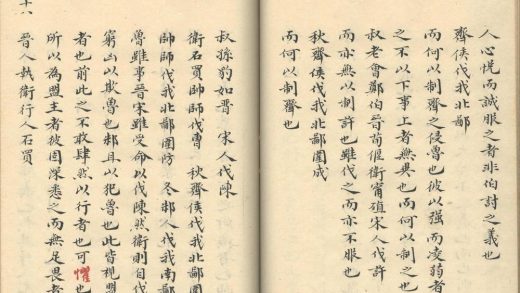 人心悅而誠服之者非伯討之義也
齊侯伐我北鄙
而何以制齊之侵魯也彼以强而凌弱者
之不以下事上者無異也而何以制之也
叔老會鄭伯晉荀偃衛甯殖宋人伐許
而亦無以制許也雖伐之而亦不服也
秋齊侯伐我北鄙圍成
而何以制齊也
叔孫豹如晉 宋人伐陳
衛石買帥師伐曹 秋齊侯伐我北鄙圍
帥師伐我北鄙圍防 冬邾人伐我南鄙
魯雖事晉宋雖受命以伐陳然衛則自伐
窮凶以欺魯也邾且以犯魯也此皆視盟
者也前此之不敢肆然以行者也可懼也
所以為盟主者彼固深悉之而無足畏者
晉人執衛行人石買
十六